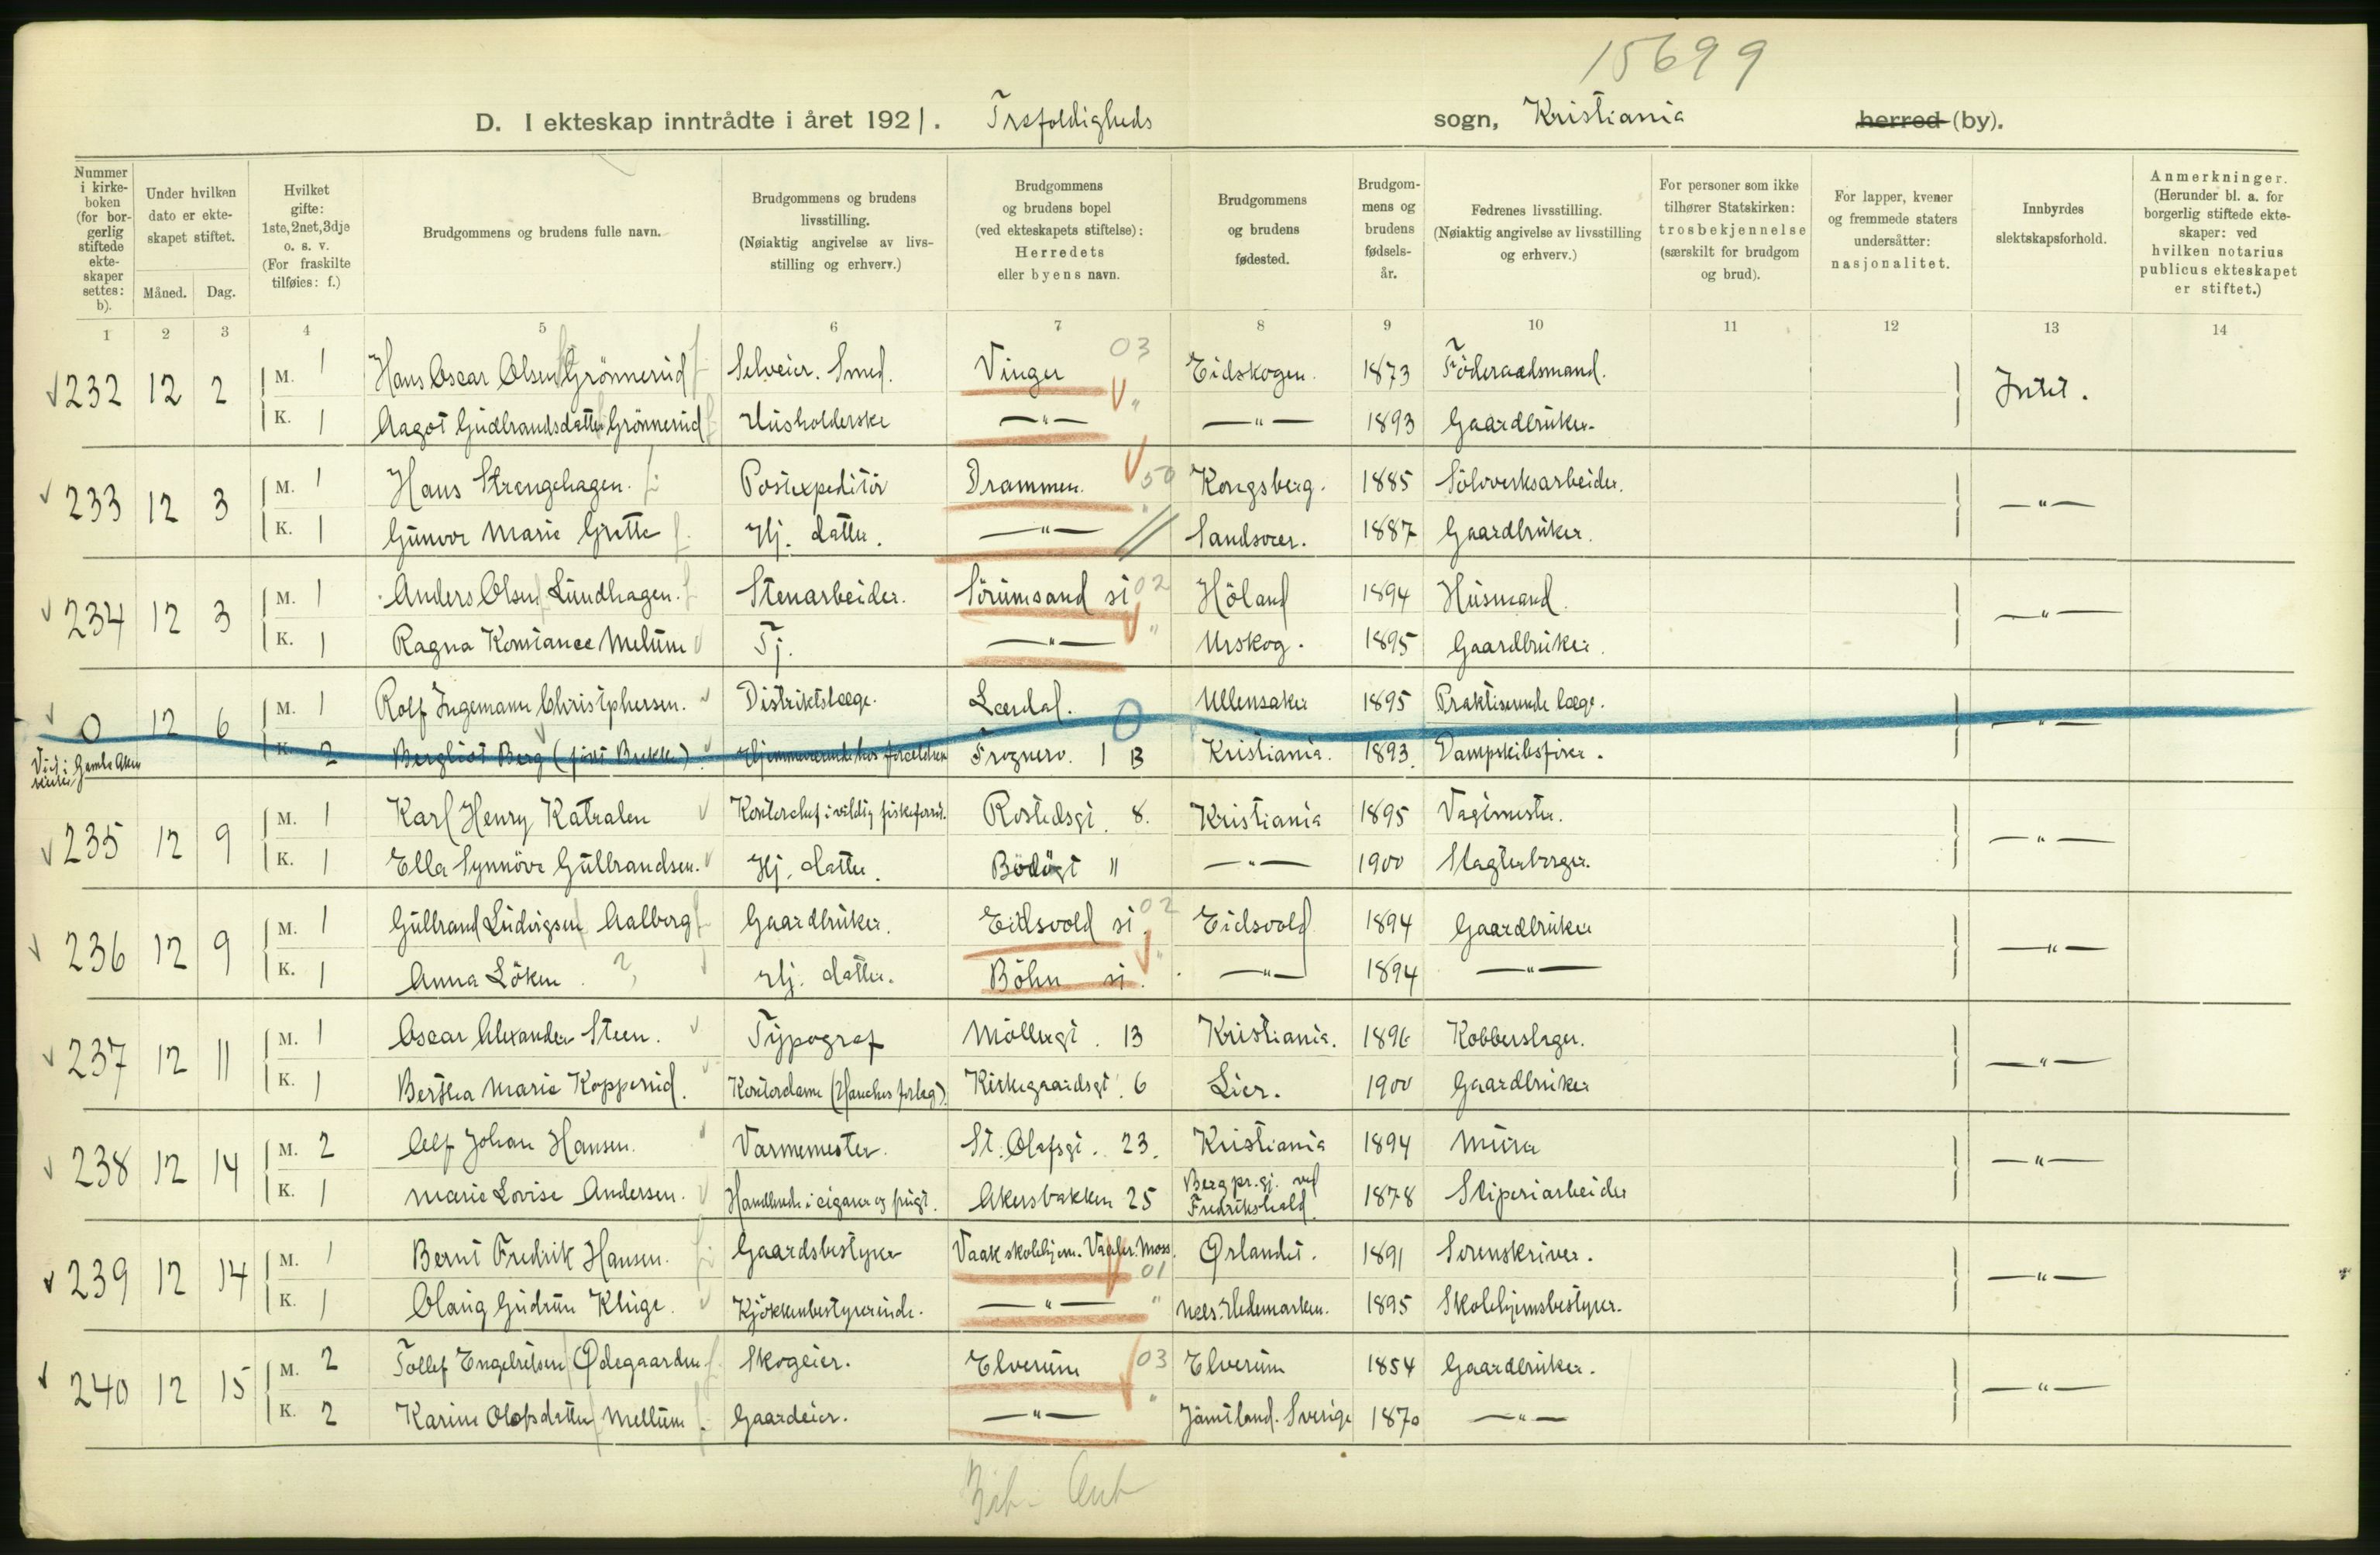 15699
D. I ekteskap inntrådte i året 1921. Trefoldigheds sogn, Kristiania herred (by).
Nummer i kirkeboken (for borgerlig stiftede ekteskaper settes: b).
Under hvilken dato er ekteskapet stiftet.
Måned. Dag.
Hvilket gifte: 1ste, 2net, 3dje o. s. v. (For fraskilte tilføies: f.)
Brudgommens og brudens fulle navn.
Brudgommens og brudens livsstilling. (Nøiaktig angivelse av livsstilling og erhverv.)
Brudgommens og brudens bopel (ved ekteskapets stiftelse): Herredets eller byens navn.
Brudgommens og brudens fødested.
Brudgommens og brudens fødselsår.
Fedrenes livsstilling. (Nøiaktig angivelse av livsstilling og erhverv.)
For personer som ikke tilhører Statskirken: trosbekjennelse (særskilt for brudgom og brud).
For lapper, kvener og fremmede staters undersåtter: nasjonalitet.
Innbyrdes slektskapsforhold.
Anmerkninger. (Herunder bl. a. for borgerlig stiftede ekteskaper: ved hvilken notarius publicus ekteskapet er stiftet.)
1 2 3 4 5 6 7 8 9 10 11 12 13 14
232 12 2 M. 1 Hans Oscar Olsen Grönnerud Selveier. Smed. Vinger 03 Eidskogen. 1873 Föderaadsmand. Intet.
K. 1 Aagot Gudbrandsdatter Grönnerud Husholderske —"— " —"— 1893 Gaardbruker.
233 12 3 M. 1 Hans Strengehagen. Postexpeditör Drammen. 50 Kongsberg. 1885 Sölvverksarbeider. —"—
K. 1 Gunvor Marie Grette Hj. datter. —"— " Sandsvær. 1887 Gaardbruker.
234 12 3 M. 1 Anders Olsen Lundhagen. Stenarbeider. Sörumsand si 02 Höland 1894 Husmand. —"—
K. 1 Ragna Konstance Melum Tj. —"— " Urskog. 1895 Gaardbruker.
0 12 6 M. 1 Rolf Ingemann Christphersen. Distriktslæge. Lærdal. 0 Ullensaker 1895 Praktiserende læge. —"—
K. 2 Bergliot Berg (födt Bekke) Hjemmeværende hos forældrene Frognerv. 1 B Kristiania. 1893. Dampskibsförer.
Viet i Gamle Aker kirke
235 12 9 M. 1 Karl Henry Katralen Rostedsgt. 8. Kristiania 1895 Vagtmester. —"—
K. 1 Ella Synnöve Gulbrandsen. Hj. datter. Bodögt 11 —"— 1900 Slagterborger.
236 12 9 M. 1 Gulbrand Ludvigsen Aalberg Gaardbruker. Eidsvold si. 02 Eidsvold 1894 Gaardbruker —"—
K. 1 Anna Löken. ? Hj. datter. Böhn si. " —"— 1894 —"—
237 12 11 M. 1 Oscar Alexander Steen. Typograf Möllergt. 13 Kristiania. 1896 Kobberslager. —"—
K. 1 Bertha Marie Kopperud. Kontordame (Hanches forlag). Kirkegaardsgt. 6 Lier. 1900 Gaardbruker
238 12 14 M. 2 Alf Johan Hansen. Varmemester. St. Olafsgt. 23. Kristiania 1894 Murer —"—
K. 1 Marie Lovise Andersen. Handlende i cigarer og frugt. Akersbakken 25 Berg pr.gj. ved Fredrikshald. 1878 Sliperiarbeider
239 12 14 M. 1 Bernt Fredrik Hansen. Gaardsbestyrer Vaak skolehjem. Vaaler. Moss. 01 Ørlandet. 1891 Sorenskriver. —"—
K. 1 Olaug Gudrun Kluge. Kjökkenbestyrerinde. —"— " Næs. Hedemarken. 1895 Skolehjemsbestyrer.
240 12 15 M. 2 Tollef Engebretsen Ødegaarden. Skogeier. Elverum 03 Elverum 1854 Gaardbruker. —"—
K. 2 Karine Olofsdatter Mellum Gaardeier. —"— " Jämtland. Sverige 1870 —"—